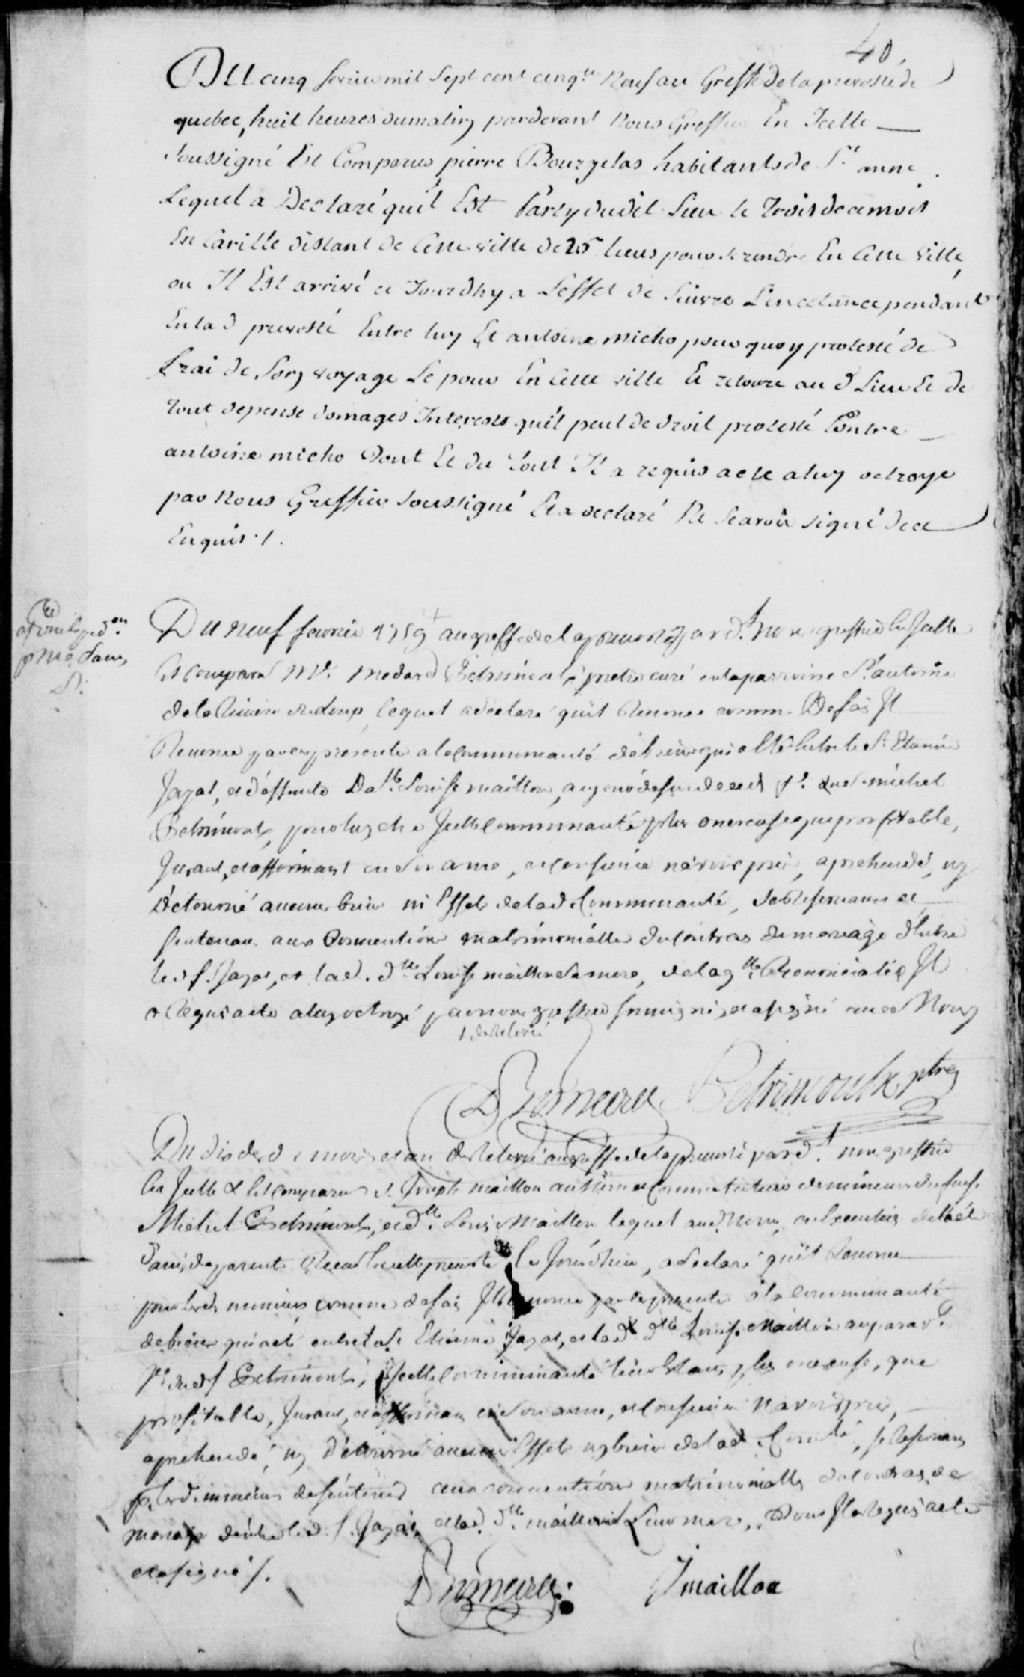 40
Du cinq fevrier mil sept cent cinq.te neuf au Greffe de la prevosté de
quebec, huit heures du matin pardevant nous Greffier En Icelle
soussigné Est Comparus pierre Bourgelas habitants de S.te anne
Lequel a Declaré quil Est Party dudit Lieu le Trois de ce mois
En Cariolle distant de Cette ville de 25 lieus pour se rendre En Cette ville
ou Il Est arrivé ce Jourdhy a Leffet de suivre Linctance pendante
En la d prevosté Entre luy Et antoine micho pour quoy protesté de
frai de son voyage Le pour En Cette ville Et retoure au d Lieu Et de
Tout depense domages Interests quil peut de droit protesté Contre
antoine micho Dont Et du Tout Il a requis acte a luy octroye
par nous Greffier soussigné Et a declaré Ne Scavoir signé de ce
Enquis ./.
Du neuf fevrier 1759 au greffe de la prevosté pard.t nous greffier En Icelle
Est comparu M.re Medard Petrimoulx pretre curé en la parroisse S.t antoine
de la Riviere du Loup, lequel a declaré quil Renonce comme De fait Il
Renonce par ces presentes a la Communauté de biens qui a Eté Entre le S. Etienne
Jayat, et deffunte Da.lle Louise maillou, auparavant veuve du S.r michel
Petrimoulx, pour luy etre Icelle Communauté plus onereuse que proffitable,
Jurant, et affirmant en son ame, et Conscience n'avoir pris, aprehendé, ny
Detourné aucuns biens ni Effets de la d. Communauté, se Reservant et
se tenant aux Conventions matrimonialles du Contrat de mariage d'Entre
le d. S. Jayat, et la d. d.lle Louise maillou sa mere, de laq.lle Renonciation Il
a Requis acte a luy octroyé par nous greffier soussigné, et a signé avec Nous
/ de Relevé
Petrimoulx ptre
Du dix des d. mois et an de Relevé au greffe de la prevosté pard.t nous greffier
En Icelle Est Comparu S. Joseph maillou au nom et Comme tuteur des mineurs du feu S.
Michel Petrimoulx, et d.lle Louise Maillou lequel au d. Nom, en Execution de l'acte
Davis de parents Recu En cette prevosté Ce Jourdhuy, a declaré quil Renonce
pour les d. mineurs comme de fait Il Renonce par les presentes a la Communauté
de biens qui a eté entre le S. Etienne Jayat, et la d. d.lle Louise Maillou auparav.t
V.e du d. S. Petrimoulx, Icelle Communauté leur Etant plus onereuse, que
profitable, Jurant, et affirmant en Son ame, et Conscience N'avoir pris,
aprehendé, ny Détourné aucuns Effets ny biens de la d. Com.té, se Reservant
p.r les d. mineurs de se tenir aux conventions matrimonialles du contrat de
mariage d'entre le d. S. Jayat, et la d. d.lle maillou Leur mere, Dont Il a Requis acte
et a signé /.
J maillou